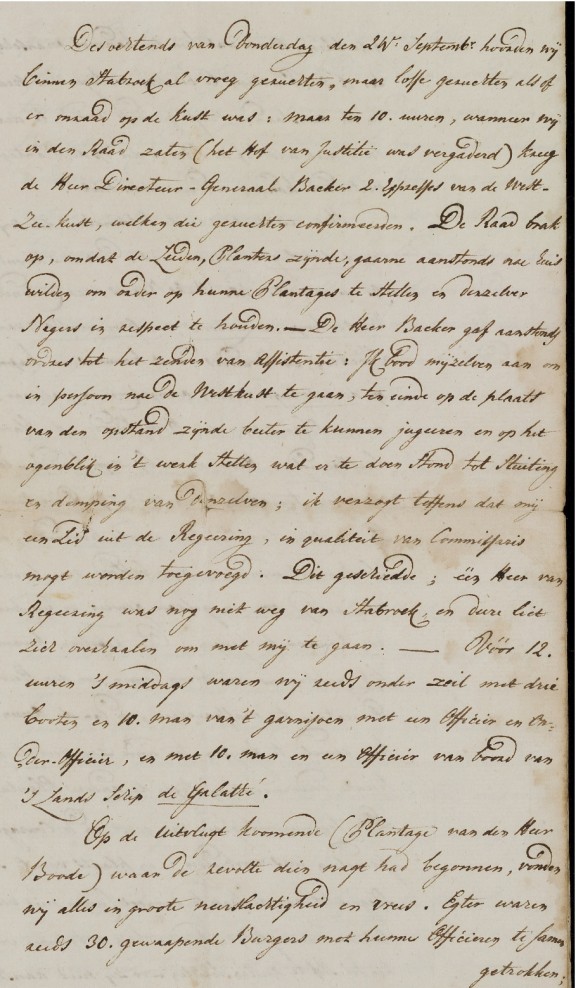 Des ochtends van Donderdag den 24n. Septembr. hoorden wij
binnen Stabroek al vroeg geruchten, maar losse geruchten als of
er onraad op de Kust was: maar ten 10. uuren, wanneer wij
in den Raad zaten (het Hof van Justitie was vergaderd) kreeg
de Heer Directeur-Generaal Backer 2. Expresses van de West-
Zee-kust, welken die geruchten confirmeerden. De Raad brak
op, omdat de Leeden, Planters zijnde, gaarne aanstonds nae huis
wilden om order op hunne Plantages te stellen en derzelver
Negers in respect te houden. — De Heer Backer gaf aanstonds
ordres tot het zenden van assistentie: Ik bood mijzelven aan om
in persoon nae de Westkust te gaan, ten einde op de plaats
van den opstand zijnde beeter te kunnen jugeeren en op het
ogenblik in 't werk stellen wat er te doen stond tot stuiting
en demping van denzelven; ik verzogt teffens dat mij
een Lid uit de Regeering, in qualiteit van Commissaris
mogt worden toegevoegd. Dit geschiedde; één Heer van
Regeering was nog niet weg van Stabroek, en deze liet
zich overhaalen om met mij te gaan. — Vóór 12.
uuren 's middags waren wij reeds onder zeil met drie
booten en 10. man van 't garnisoen met een Officier en On-
der-Officier, en met 10. man en een Officier van boord van
's Lands Schip de Galatté.
Op de Uitvlugt koomende (Plantage van den Heer
Boode) waar de revolte dien nagt had begonnen, vonden
wij alles in groote neerslachtigheid en vrees. Egter waren
reeds 30. gewaapende Burgers met hunne Officieren te samen
getrokken;